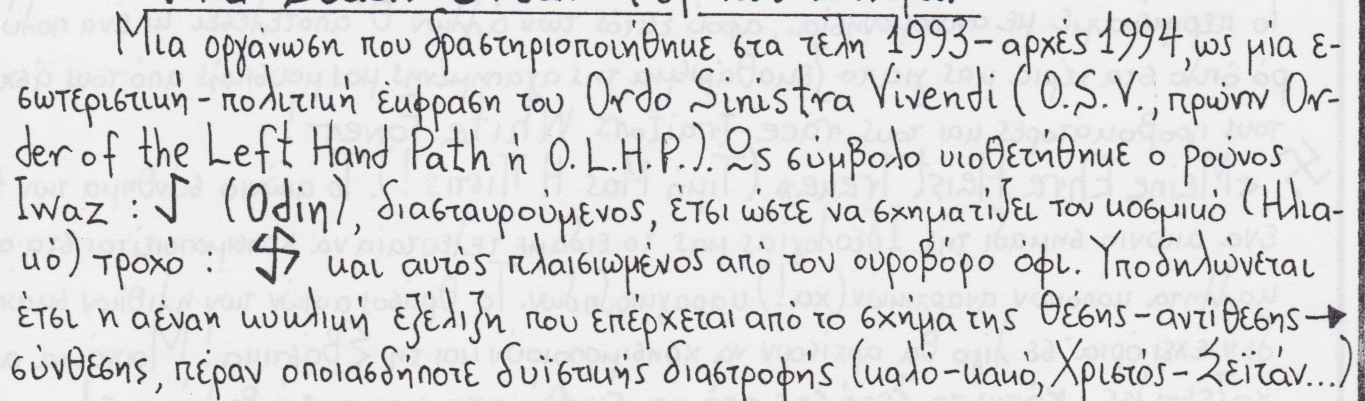 Μια οργάνωση που δραστηριοποιήθηκε στα τέλη 1993-αρχές 1994, ως μια ε-
σωτεριστική-πολιτική έκφραση του Ordo Sinistra Vivendi (O.S.V., πρώην Or-
der of the Left Hand Path ή O.L.H.P.). Ως σύμβολο υιοθετήθηκε ο ρούνος
Iwaz : (Odin), διασταυρούμενος, έτσι ώστε να σχηματίζει τον κοσμικό (Ηλια-
κό) τροχό : και αυτός πλαισιωμένος από τον ουροβόρο όφι. Υποδηλώνεται
έτσι η αέναη κυκλική εξέλιξη που επέρχεται από το σχήμα της θέσης-αντίθεσης→
σύνθεσης, πέραν οποιασδήποτε δυϊστικής διαστροφής (καλό-κακό, Χριστός-Σεϊτάν...)